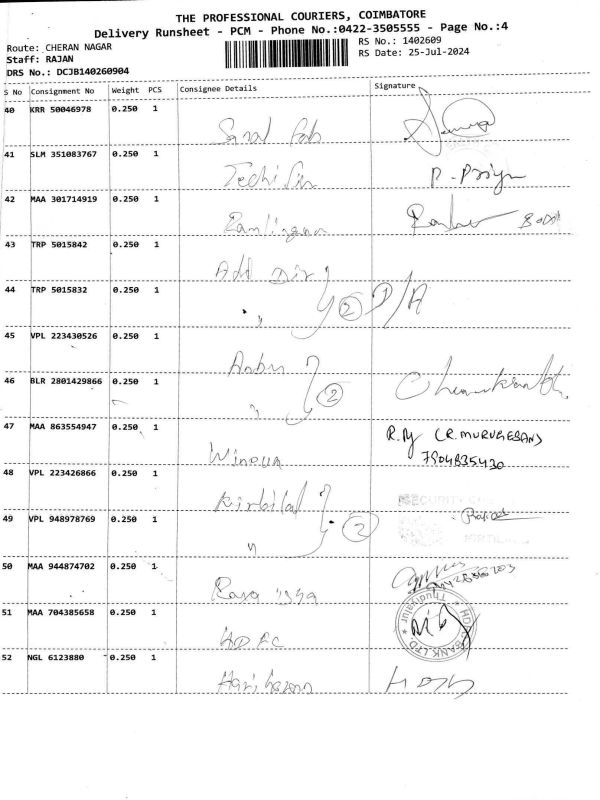 THE PROFESSIONAL COURIERS, COIMBATORE
Delivery Runsheet - PCM - Phone No.:0422-3505555 - Page No.:4
Route: CHERAN NAGAR
RS No.: 1402609
Staff: RAJAN
RS Date: 25-Jul-2024
DRS No.: DCJB140260904
S No Consignment No Weight PCS Consignee Details Signature
40 KRR 50046978 0.250 1
41 SLM 351083767 0.250 1
R. Priya
42 MAA 301714919 0.250 1
43 TRP 5015842 0.250 1
Add Dir
44 TRP 5015832 0.250 1
" 2 D/A
45 VPL 223430526 0.250 1
Anbu
46 BLR 2801429866 0.250 1
" 2
47 MAA 863554947 0.250 1
R. (R. MURUGESAN)
7904835430
48 VPL 223426866 0.250 1
Kirbilal
SECURITY
49 VPL 948978769 0.250 1
" 2
50 MAA 944874702 0.250 1
51 MAA 704385658 0.250 1
HDFC
Thudiyalur
HDFC BANK LTD.
52 NGL 6123880 0.250 1